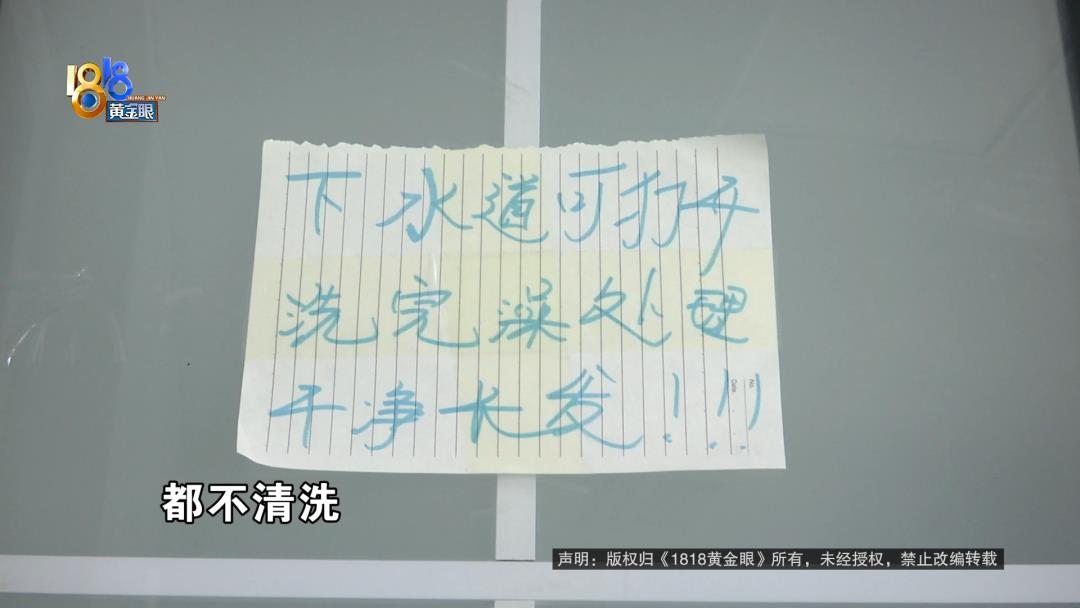 1818
HUANG JIN YAN
黄金眼
下水道可打开
洗完澡处理
干净长发!!!
No.
Date
都不清洗
声明：版权归《1818黄金眼》所有，未经授权，禁止改编转载